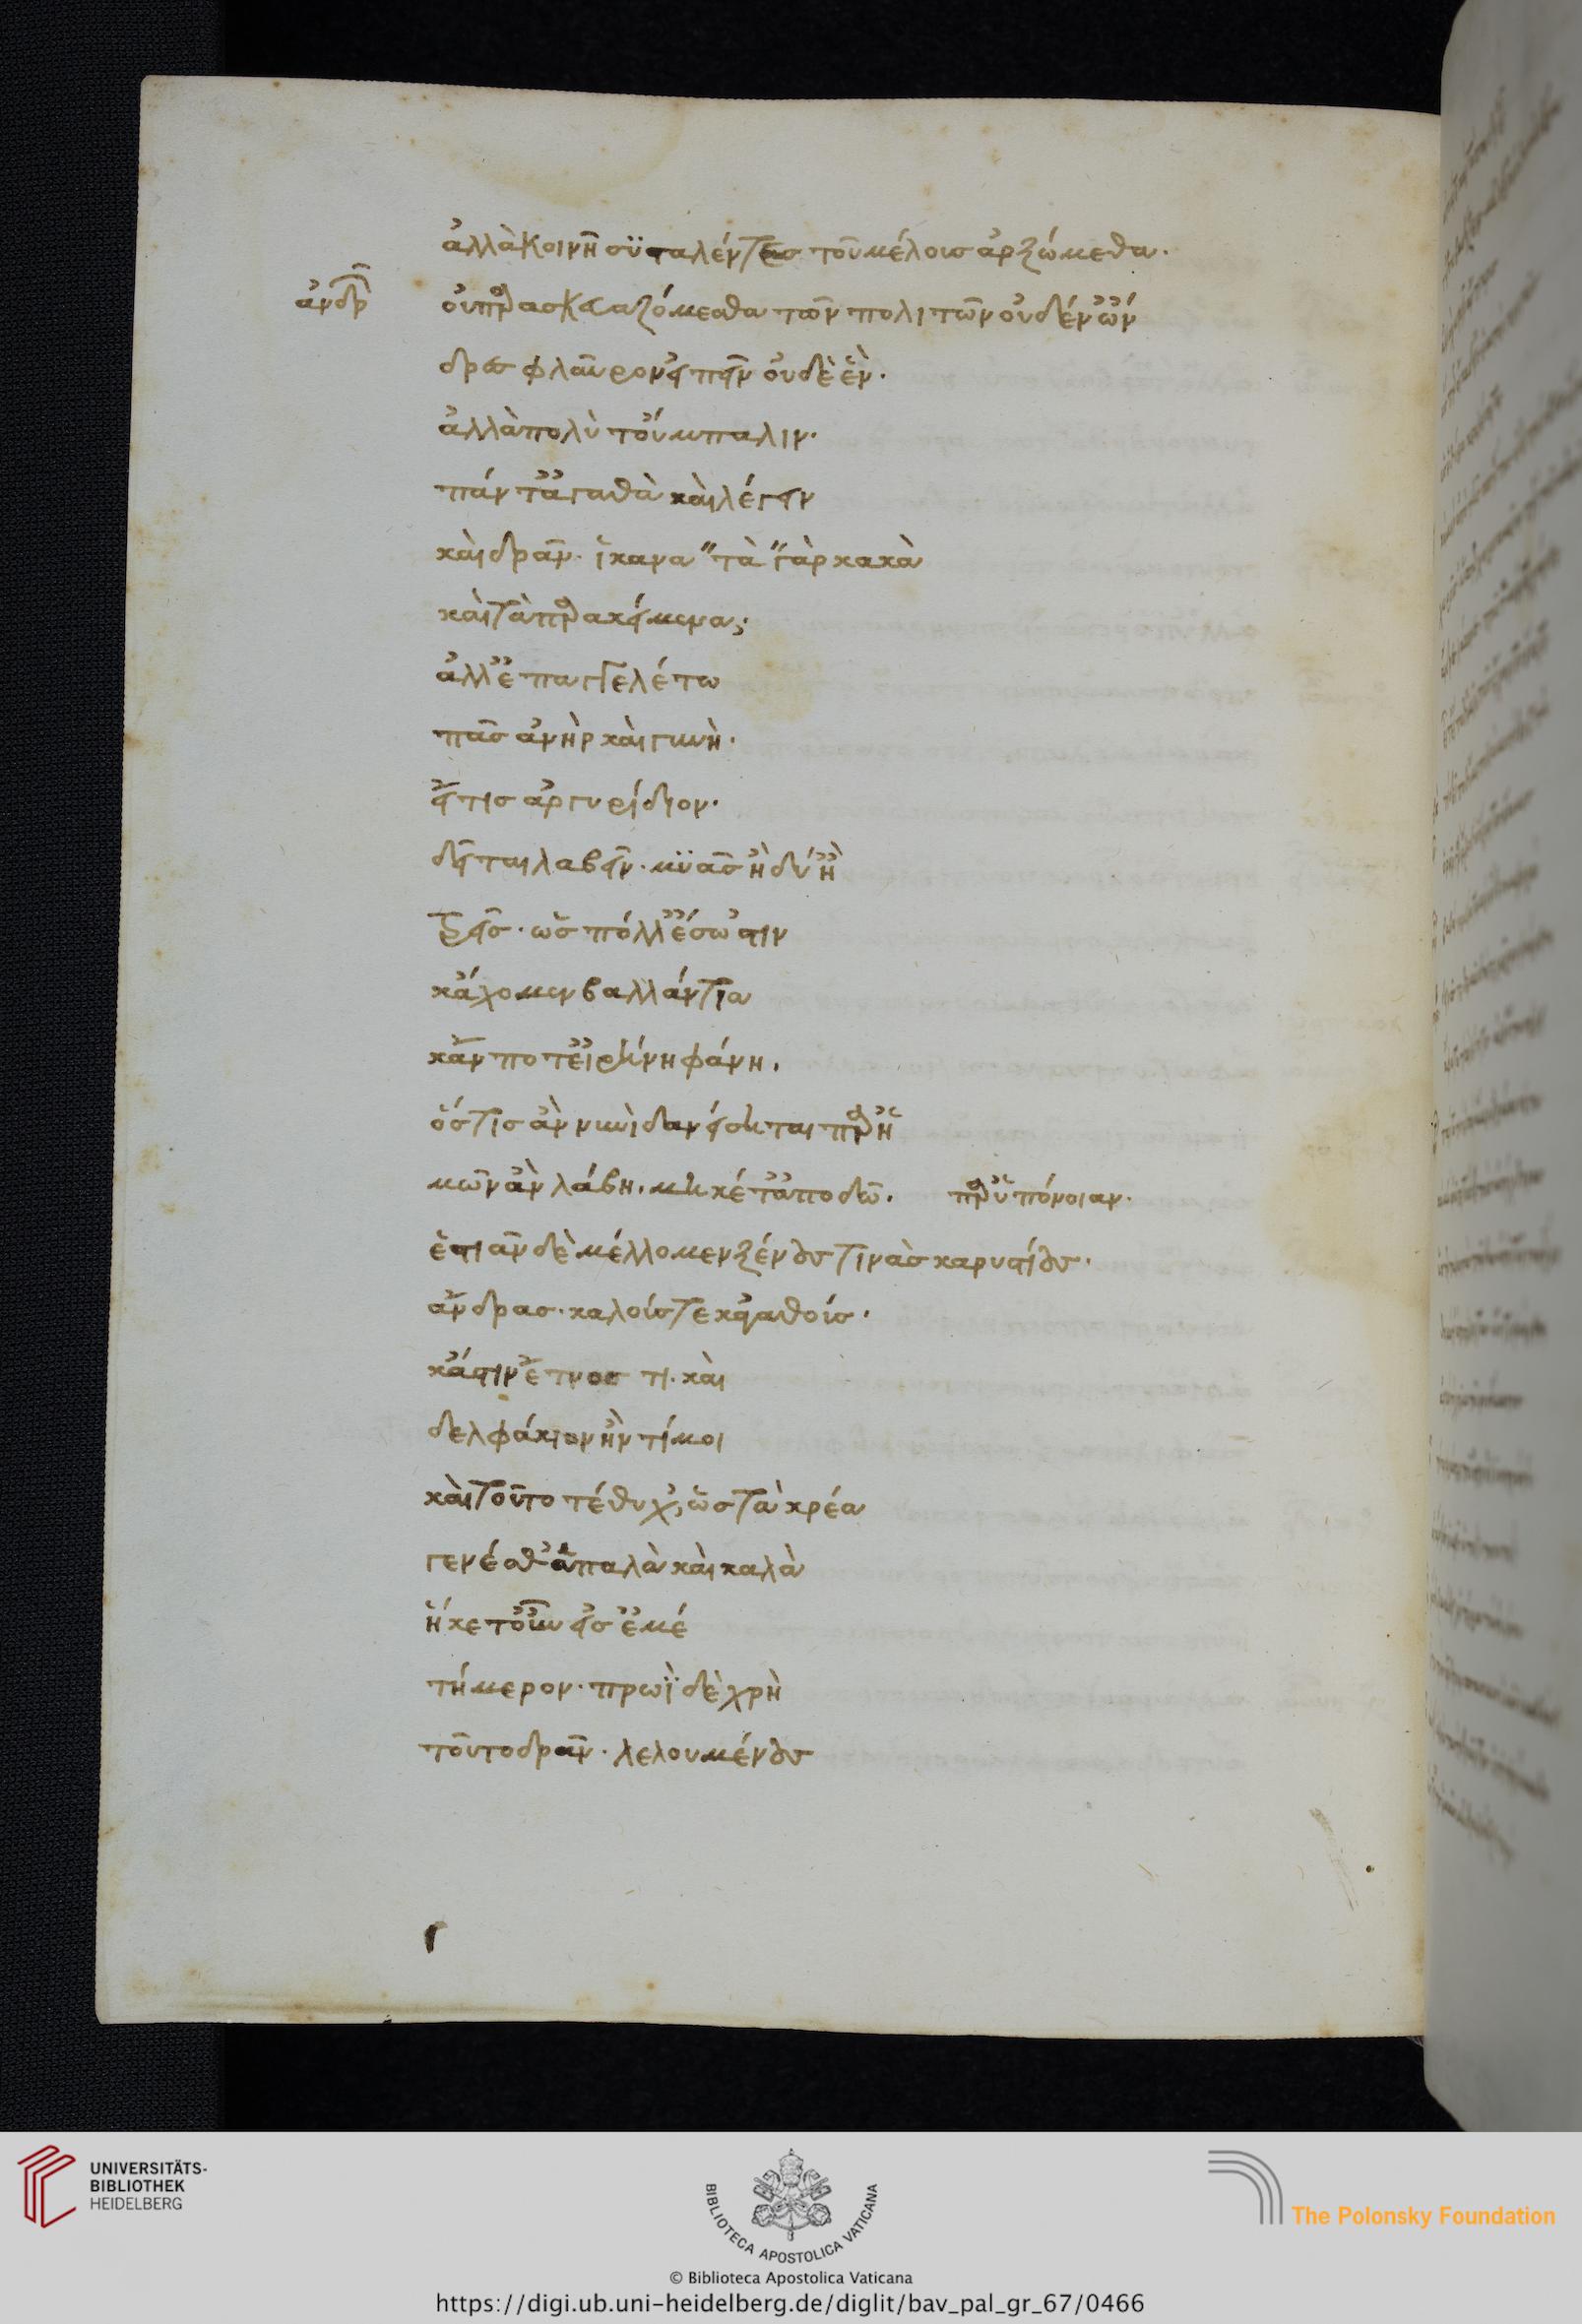 ἀλλὰ κοινῆ συσταλέντες τοῦ μέλους ἀρξώμεθα.
ἀνδρ
οὐ παρασκευαζόμεσθα τῶν πολιτῶν οὐδέν' ὦν
δρες φλαῦρον εἰπεῖν οὐδὲ ἕν.
ἀλλὰ πολὺ τοὔμπαλιν.
πάντ' ἀγαθὰ καὶ λέγειν
καὶ δρᾶν. ἱκανὰ τὰ γὰρ κακὰ
καὶ τὰ παρακείμενα;
ἀλλ' ἐπαγγελέτω
πᾶς ἀνὴρ καὶ γυνὴ.
εἴ τις ἀργυρίδιον.
δεῖται λαβεῖν. μνᾶς ἢ δύ' ἢ
τρεῖς. ὡς πόλλ' ἔσω 'στιν
κἄχομεν βαλλάντια
κἄν ποτ' εἰρήνη φάνη.
ὅστις ἂν νυνὶ δανείσηται παρ' ἡ
μῶν ἂν λάβη. μηκέτ' ἀποδῶ. παρ' ὑπόνοιαν.
ἑστιᾶν δὲ μέλλομεν ξένους τινὰς καρυστίους.
ἄνδρας. καλούς τε κἀγαθούς.
κἄστιν ἔτνος τι. καὶ
δελφάκιον ἦν τί μοι
καὶ τοῦτο τέθυχ', ὥς τὰ κρέα
γενέσθ' ἁπαλὰ καὶ καλὰ
ἥκετ' οὖν εἰς ἐμέ
τήμερον. πρωῒ δὲ χρὴ
τοῦτο δρᾶν. λελουμένους
UNIVERSITÄTS-
BIBLIOTHEK
HEIDELBERG
BIBLIOTECA APOSTOLICA VATICANA
The Polonsky Foundation
© Biblioteca Apostolica Vaticana
https://digi.ub.uni-heidelberg.de/diglit/bav_pal_gr_67/0466